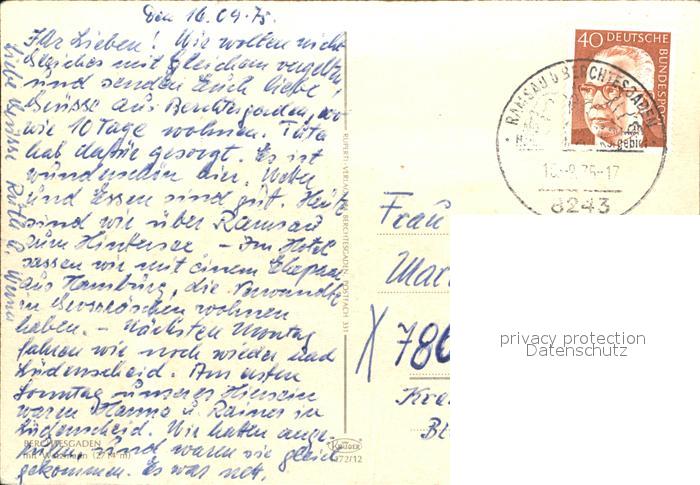 Den 16.09.75.
Ihr Lieben! Wir wollen nicht
Gleiches mit Gleichem vergelten
und senden Euch liebe
Grüsse aus Berchtesgaden, wo
wir 10 Tage wohnen.
hat dafür gesorgt. Es ist
wunderschön hier, Wetter
und Essen sind gut. Heute
sind wir über Ramsau
zum Hintersee – Im Hotel
sassen wir mit einem Ehepaar
aus Hamburg, die Verwandte
in wohnen
haben. – Nächsten Montag
fahren wir noch wieder nach
Lüdenscheid. Am ersten
Sonntag unseres Hierseins
waren Hanna u. Rainer in
Lüdenscheid. Wir hatten ange-
rufen, und waren sie gleich
gekommen. Es war nett.
Liebe Grüsse
BERCHTESGADEN
mit Watzmann (2714 m)
RUPERTI-VERLAG BERCHTESGADEN, POSTFACH 331
KRÜGER
972/12
40 DEUTSCHE
BUNDESPOST
RAMSAU B BERCHTESGADEN
Kurgebiet
75-17
8243
Frau
X 786
privacy protection
Datenschutz